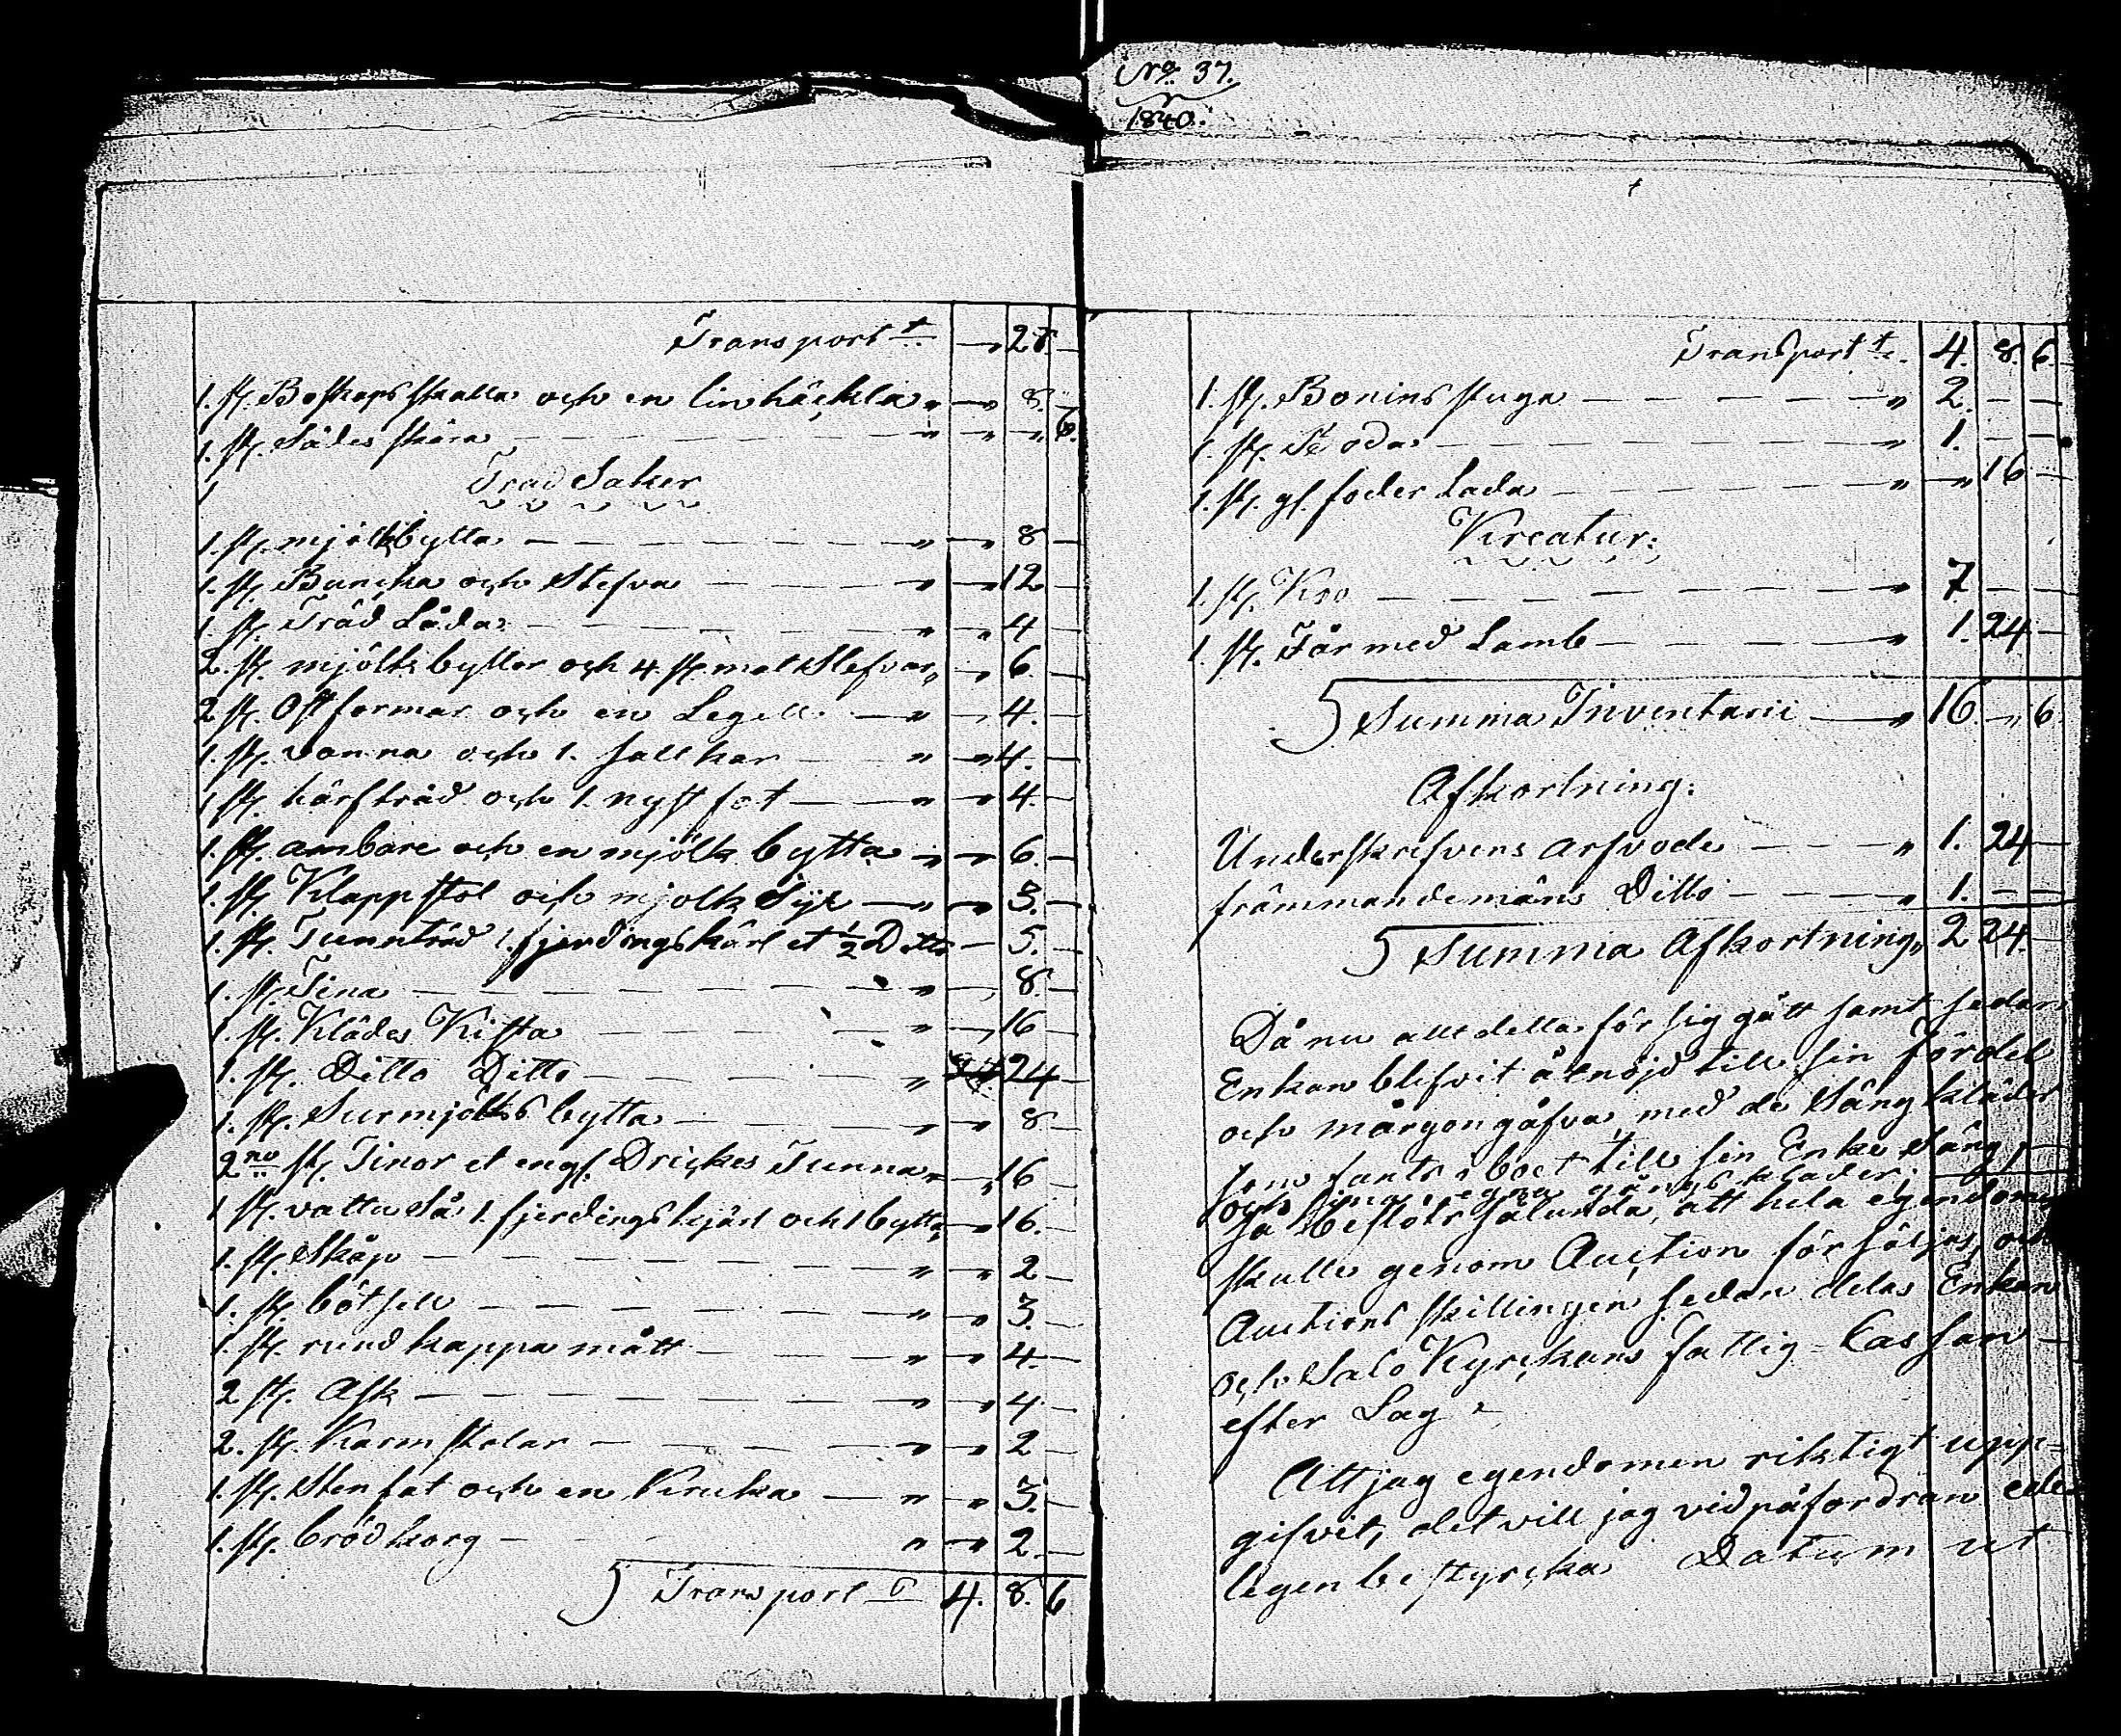 Transport t — 28 —
1. st. Boskaps skälla och en linhäckla " — 8. —
1. st. Sädes skära — " — " 6.
Träd Saker
1. st. mjölkbytta — " — 8 —
1. st. Buncka och Stefva — " — 12 —
1. st. Träd Låda — " — 4 —
2. st. mjölks byttor och 4. st. mat Stefvor " — 6. —
2 st. Ostformar och en Legell — " — 4. —
1. st. vanna och 1. salt kar — " — 4. —
1 st. härfträd och 1. nystfot — " — 4. —
1. st. ambare och en mjölk bytta " — 6. —
1. st. Klappstol och mjolk Syl — " — 3. —
1. st. Tunnträd 1. fjerdingskärl et ½ Ditto — 5. —
1. st. Tina — " — 8. —
1. st. Klädes Kista — " — 16 —
1. st. Ditto Ditto — " 24 —
1. st. Surmjölks bytta — " — 8 —
2 no st. Tinor et engl. Drickes Tunna " — 16 —
1 st. vattu Så 1. fjerdingskjärl och 1 bytta — 16. —
1. st. Skåp — " — 2 —
1. st. bötsell — " — 3. —
1. st. rund kappa mått — " — 4. —
2 st. Ask — " — 4. —
2. st. Karmstolar — " — 2 —
1. st. Stenfat och en Kruka — " — 3. —
1. st. brödkorg — " — 2. —
Transport 4. 8. 6
No. 37.
1840.
Transport t. 4. 8. 6.
1. st. Bonins stuga — " 2. — —
1. st. — " 1. — —
1. st. gl. foder Lada — " — 16 —
Kreatur.
1. st. Ko — " 7. — —
1 st. Får med Lamb — " 1. 24 —
Summa Inventarii — " 16. — 6.
Afkortning.
Underskrefvens arfvode — " 1. 24 —
främmandemäns Ditto — " 1. — —
Summa Afkortning " 2 24. —
Då nu allt detta för sig gått samt sedan
Enkan blefvit åtnöjd till sin Fördel
och mårgongåfva, med de Sängkläder
som fants i boet till sin Enke Säng,
och sina egna gångkläder;
så beslöts sålunda, att hela egendomen
skulle genom Auction försäljas, och
Auctions skillingen sedan delas Enkan
och Salo Kyrckans fattig-Cassan —
efter Lag.
Att jag egendomen riktigt upp=
gifvit, det vill jag vid påfordran ede=
ligen bestyrcka Datum ut